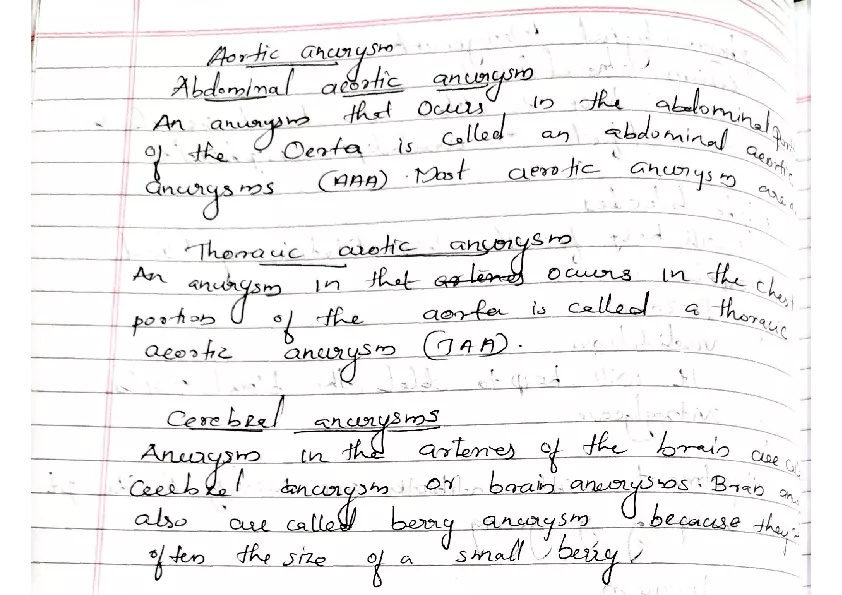 Aortic aneurysm
Abdominal aeortic aneurysm
An aneurysm that Ocurs in the abdominal
of the Oerta is called an abdominal aeortic
aneurysms (AAA). Most aerotic aneurysm are
Thoracic arotic aneurysm
An aneurysm in that occurs in the chest
portion of the aorta is called a thoracic
aeortic aneurysm (TAA).
Cerebral aneurysms
Aneurysm in the arteries of the brain are
Cerebral aneurysm or brain aneurysms. Bran
also are called berry aneurysm because they
often the size of a small berry.